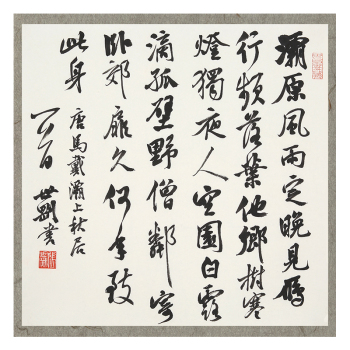 灞原風雨定晚見鴈
行頻落葉他鄉樹寒
燈獨夜人空園白露
滴孤壁野僧鄰寄
臥郊扉久何年致
此身 唐馬戴灞上秋居
世書